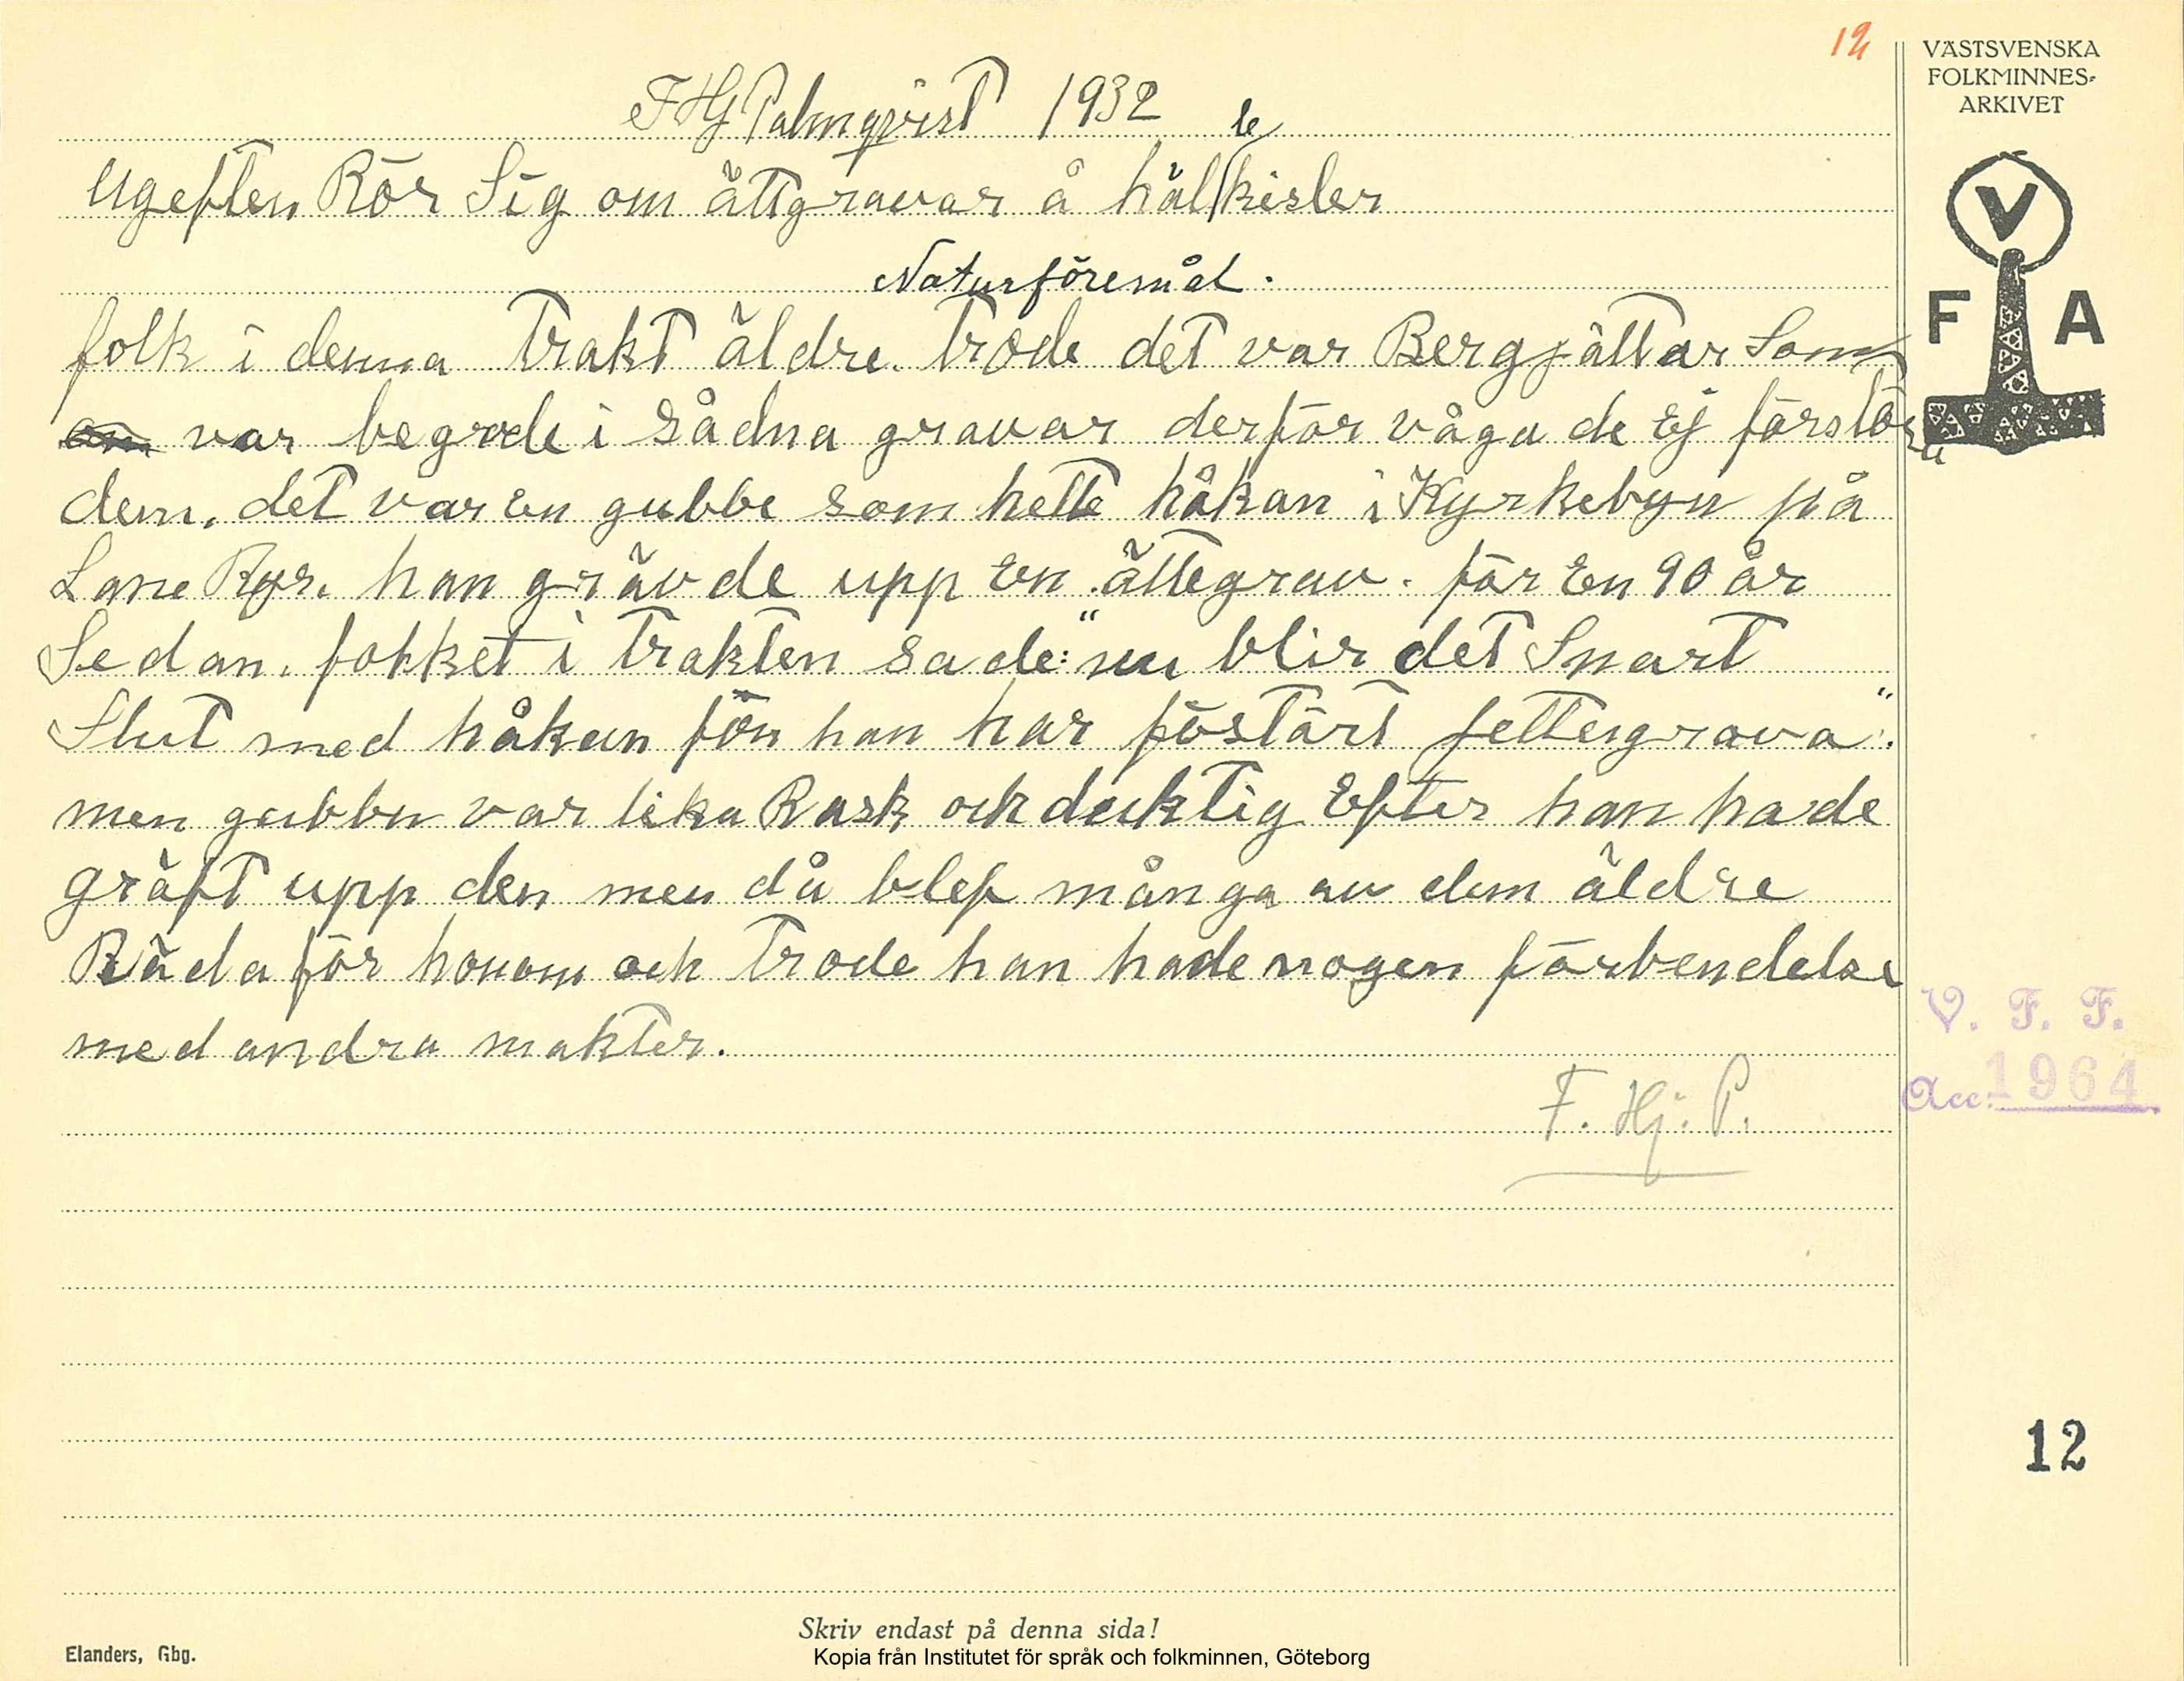 12
VÄSTSVENSKA
FOLKMINNES-
ARKIVET
F Hj Palmqvist 1932
Ugeften Rör Sig om ättgravar å häl le kister
Naturföremål.
V
F A
folk i denna trakt äldre. trode det var Bergjättar Som
var begrade i sådna gravar derför våga de Ej förstöra
dem. det var En gubbe som hette håkan i Kyrkebyn på
Lane Ryr. han grävde upp En ättegrav. för En 90 år
Sedan. fokket i trakten sade: "nu blir det Snart
Slut med håkan fön han har föstört jettergrava".
men gubbn var lika Rask och ducktig Efter han hade
gräft upp den men då blef många av dem äldre
Räda för honom och trode han hade nogen förbendelse
med andra makter.
V. F. F.
Acc. 1964
F. Hj. P.
12
Skriv endast på denna sida!
Elanders, Gbg.
Kopia från Institutet för språk och folkminnen, Göteborg